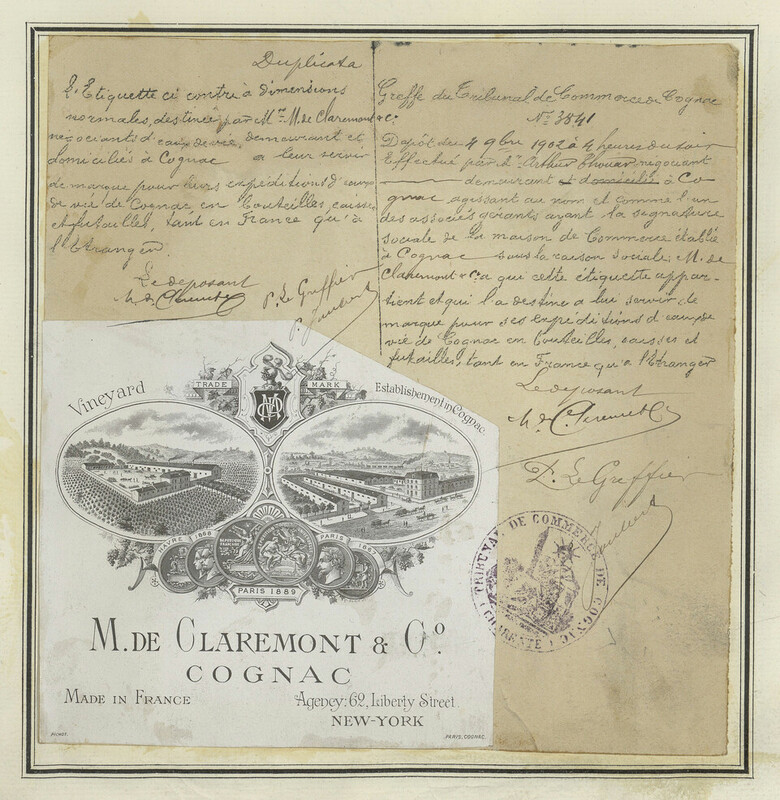 Duplicata
L'Etiquette ci contre à dimensions
normales, destinée par Mrs. M. de Claremont & Co
négociants d'eaux de vie, demeurant et
domiciliés à Cognac a leur servir
de marque pour leurs expéditions d'eaux
de vie de Cognac en bouteilles, caisses
et futailles, tant en France qu'à
l'Etranger.
Le déposant
M. de Claremont & Co
P. Le Greffier
Greffe du Tribunal de Commerce de Cognac
No 3841
Dépôt du 4 9bre 1902 à 4 heures du soir
Effectué par Mr Arthur négociant
demeurant et domicilié à Co
gnac agissant au nom et comme l'un
des associés gérants ayant la signature
sociale de la maison de Commerce établie
à Cognac sous la raison sociale, M. de
Claremont & Co a qui cette étiquette appar-
tient et qui l'a destiné a lui servir de
marque pour ses expéditions d'eaux de
vie de Cognac en bouteilles, caisses et
futailles, tant en France qu'a l'Etranger
Le déposant
M. de Claremont & Co
P. Le Greffier
TRIBUNAL DE COMMERCE DE COGNAC
(CHARENTE)
Vineyard
TRADE MARK
Establishement in Cognac.
HAVRE 1868
PARIS 1867
PARIS 1889
M. DE CLAREMONT & Co.
COGNAC
MADE IN FRANCE
Agency: 62, Liberty Street
NEW-YORK
PICHOT.
PARIS, COGNAC.